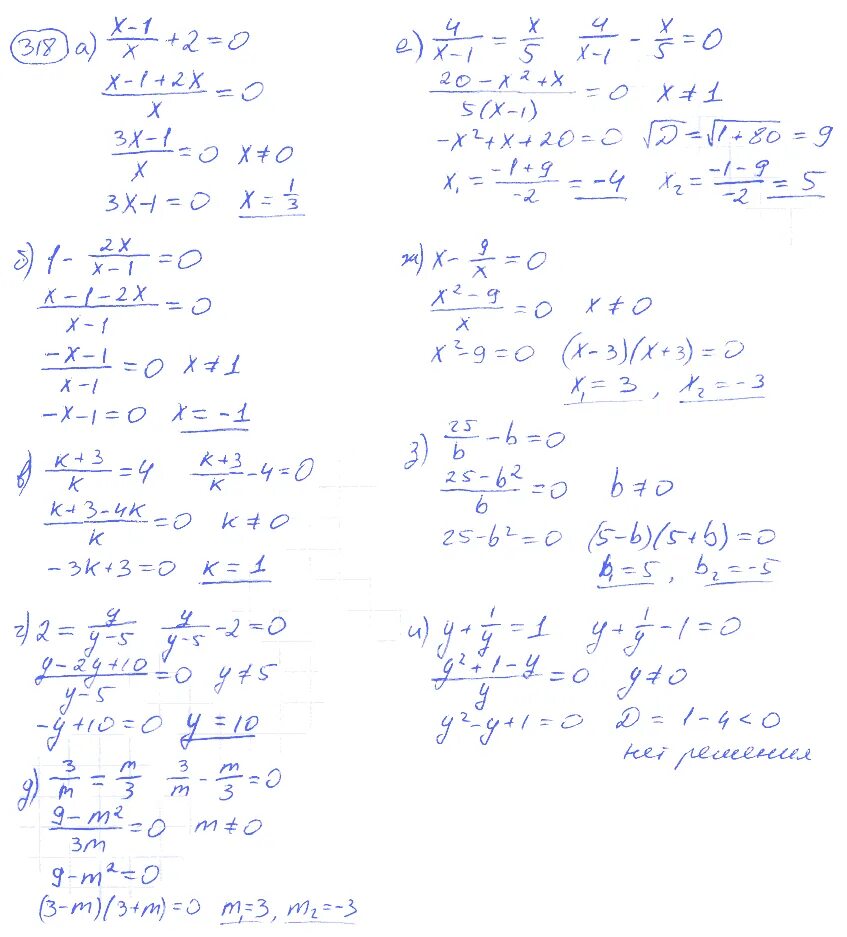 318 а) (x-1)/x + 2 = 0
(x-1+2x)/x = 0
(3x-1)/x = 0 x ≠ 0
3x-1 = 0 x = 1/3
б) 1 - 2x/(x-1) = 0
(x-1-2x)/(x-1) = 0
(-x-1)/(x-1) = 0 x ≠ 1
-x-1 = 0 x = -1
в) (k+3)/k = 4 (k+3)/k - 4 = 0
(k+3-4k)/k = 0 k ≠ 0
-3k+3 = 0 k = 1
г) 2 = y/(y-5) y/(y-5) - 2 = 0
(y-2y+10)/(y-5) = 0 y ≠ 5
-y+10 = 0 y = 10
д) 3/m = m/3 3/m - m/3 = 0
(9-m²)/3m = 0 m ≠ 0
9-m² = 0
(3-m)(3+m) = 0 m₁=3, m₂=-3
е) 4/(x-1) = x/5 4/(x-1) - x/5 = 0
(20-x²+x)/5(x-1) = 0 x ≠ 1
-x²+x+20 = 0 √D = √(1+80) = 9
x₁ = (-1+9)/-2 = -4 x₂ = (-1-9)/-2 = 5
ж) x - 9/x = 0
(x²-9)/x = 0 x ≠ 0
x²-9 = 0 (x-3)(x+3) = 0
x₁ = 3, x₂ = -3
з) 25/b - b = 0
(25-b²)/b = 0 b ≠ 0
25-b² = 0 (5-b)(5+b) = 0
b₁ = 5, b₂ = -5
и) y + 1/y = 1 y + 1/y - 1 = 0
(y²+1-y)/y = 0 y ≠ 0
y²-y+1 = 0 D = 1-4 < 0
нет решения